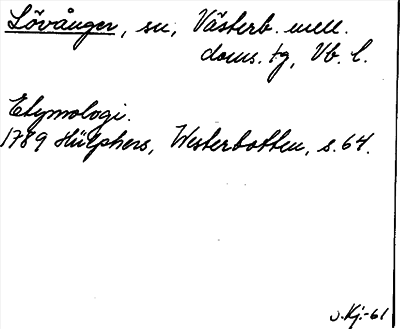 Lövånger, sn, Västerb. mell.
doms. tg, Vb. l.
Etymologi.
1789 Hülphers, Westerbotten, s. 64.
J. Kj. -61